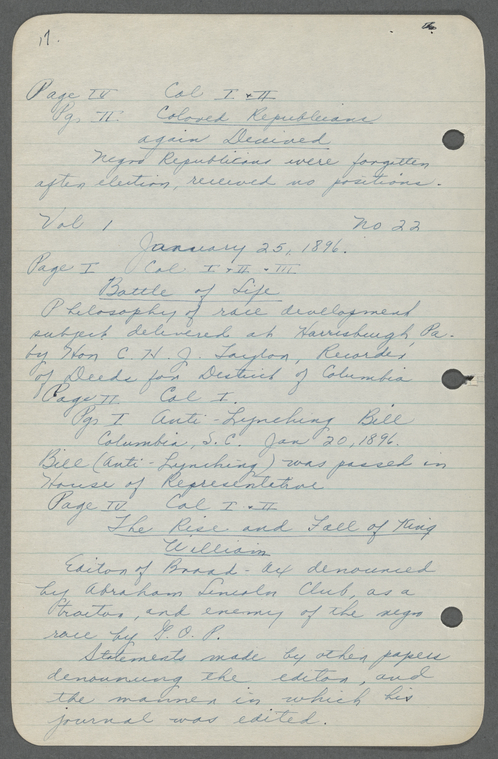 17.
Page IV Col I + II
Pg. II. Colored Republicans
again Deceived
Negro Republicans were forgotten
after election, received no positions.
Vol 1 No 22
January 25, 1896.
Page I Col I + II + III
Battle of Life
Philosophy of race development
subject delivered at Harrisburgh, Pa.
by Hon C. H. J. Taylor, Recorder
of Deeds for District of Columbia
Page II Col I.
Pg. I Anti-Lynching Bill
Columbia, S.C. Jan 20, 1896.
Bill (Anti-Lynching) was passed in
House of Representative
Page IV Col I + II
The Rise and Fall of King
William
Editor of Broad-Ax denounced
by Abraham Lincoln Club, as a
Traitor, and enemy of the negro
race by G.O.P.
Statements made by other papers
denouncing the editor, and
the manner in which his
journal was edited.